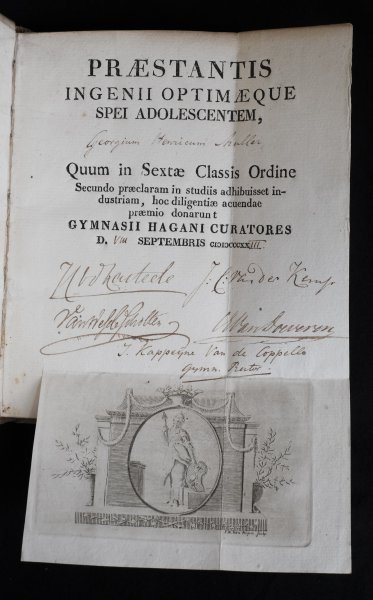 PRÆSTANTIS
INGENII OPTIMÆQUE
SPEI ADOLESCENTEM,
Georgium Henricum Muller
Quum in Sextæ Classis Ordine
Secundo præclaram in studiis adhibuisset in-
dustriam, hoc diligentiæ acuendae
præmio donarunt
GYMNASII HAGANI CURATORES
D. VIII SEPTEMBRIS CIƆIƆCCCXXIII.
J. C. van der Kemp
J. Kappeyne Van de Coppello
Gymn. Rector